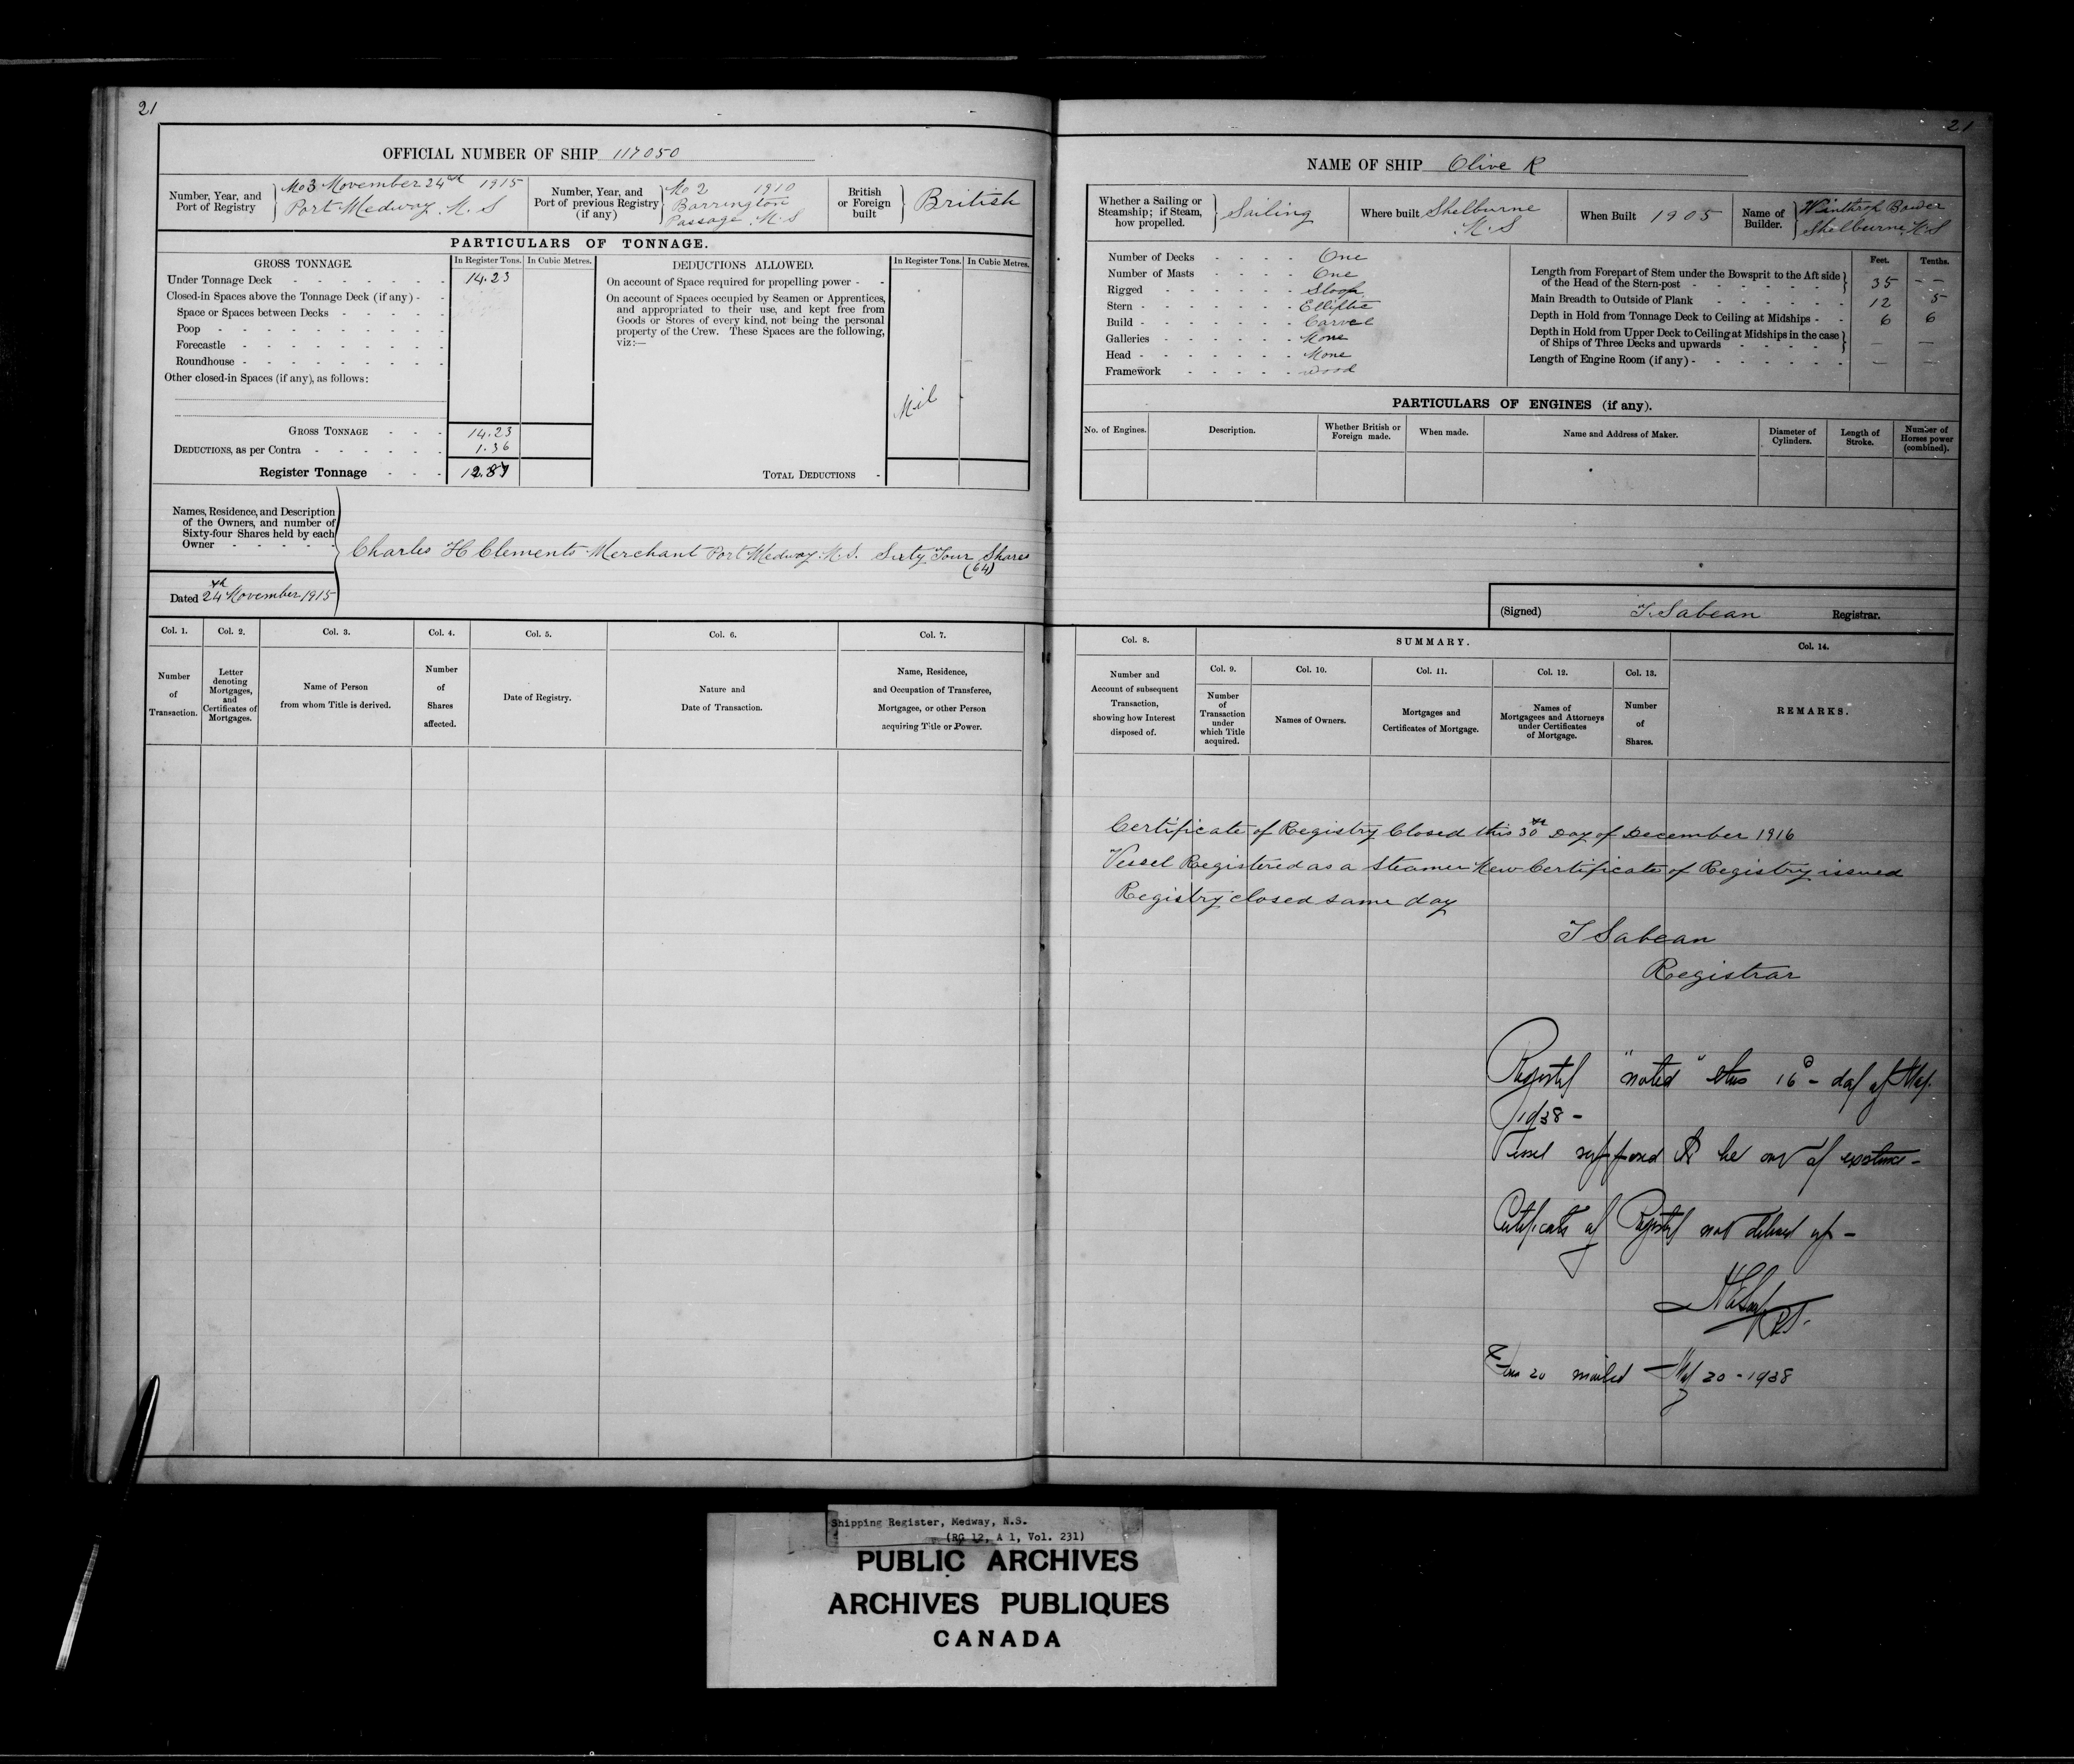 21
OFFICIAL NUMBER OF SHIP 117050
Number, Year, and
Port of Registry
No 3 November 24th 1915
Port Medway N.S
Number, Year, and
Port of previous Registry
(if any)
No 2 1910
Barrington
Passage N.S
British
or Foreign
built
British
PARTICULARS OF TONNAGE.
GROSS TONNAGE.
In Register Tons.
In Cubic Metres.
Under Tonnage Deck 14.23
Closed-in Spaces above the Tonnage Deck (if any) -
Space or Spaces between Decks
Poop
Forecastle
Roundhouse
Other closed-in Spaces (if any), as follows:
GROSS TONNAGE 14.23
DEDUCTIONS, as per Contra 1.36
Register Tonnage 12.87
DEDUCTIONS ALLOWED.
In Register Tons.
In Cubic Metres.
On account of Space required for propelling power -
On account of Spaces occupied by Seamen or Apprentices,
and appropriated to their use, and kept free from
Goods or Stores of every kind, not being the personal
property of the Crew. These Spaces are the following,
viz:—
Nil
TOTAL DEDUCTIONS
Names, Residence, and Description
of the Owners, and number of
Sixty-four Shares held by each
Owner
Charles H Clements Merchant Port Medway N.S. Sixty Four Shares
(64)
Dated 24th November 1915
Col. 1.
Number
of
Transaction.
Col. 2.
Letter
denoting
Mortgages,
and
Certificates of
Mortgages.
Col. 3.
Name of Person
from whom Title is derived.
Col. 4.
Number
of
Shares
affected.
Col. 5.
Date of Registry.
Col. 6.
Nature and
Date of Transaction.
Col. 7.
Name, Residence,
and Occupation of Transferee,
Mortgagee, or other Person
acquiring Title or Power.
21
NAME OF SHIP Olive R
Whether a Sailing or
Steamship; if Steam,
how propelled.
Sailing
Where built Shelburne
N.S
When Built 1905
Name of
Builder.
Winthrop Bower
Shelburne N.S
Number of Decks One
Number of Masts One
Rigged Sloop
Stern Elliptic
Build Carvel
Galleries None
Head None
Framework wood
Feet.
Tenths.
Length from Forepart of Stem under the Bowsprit to the Aft side
of the Head of the Stern-post 35 --
Main Breadth to Outside of Plank 12 5
Depth in Hold from Tonnage Deck to Ceiling at Midships 6 6
Depth in Hold from Upper Deck to Ceiling at Midships in the case
of Ships of Three Decks and upwards — —
Length of Engine Room (if any) — —
PARTICULARS OF ENGINES (if any).
No. of Engines.
Description.
Whether British or
Foreign made.
When made.
Name and Address of Maker.
Diameter of
Cylinders.
Length of
Stroke.
Number of
Horses power
(combined).
(Signed) T. Sabean Registrar.
Col. 8.
Number and
Account of subsequent
Transaction,
showing how Interest
disposed of.
SUMMARY.
Col. 9.
Number
of
Transaction
under
which Title
acquired.
Col. 10.
Names of Owners.
Col. 11.
Mortgages and
Certificates of Mortgage.
Col. 12.
Names of
Mortgagees and Attorneys
under Certificates
of Mortgage.
Col. 13.
Number
of
Shares.
Col. 14.
REMARKS.
Certificate of Registry Closed this 30th Day of December 1916
Vessel Registered as a Steamer New Certificate of Registry issued
Registry closed same day
T Sabean
Registrar
Registry "noted" this 16th - day of May.
1938 -
Vessel supposed to be out of existence -
Certificate of Registry not delivered up -
R.S.
Form 20 mailed - May 20 - 1938
Shipping Register, Medway, N.S.
(RG 12, A 1, Vol. 231)
PUBLIC ARCHIVES
ARCHIVES PUBLIQUES
CANADA